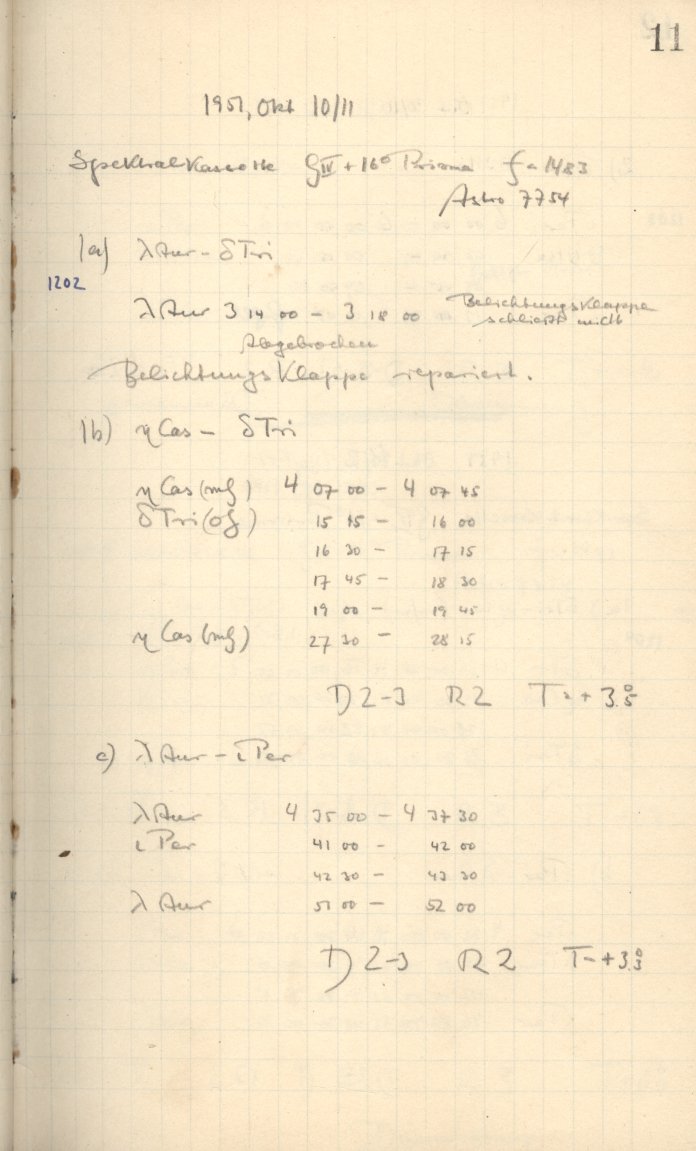 11
1951, Okt 10/11
Spektralkassette G IV + 16° Prisma f = 1483
Astro 7754
1a) λ Aur - δ Tri
1202
λ Aur 3 14 00 - 3 18 00 Belichtungsklappe
schließt nicht
Abgebrochen
Belichtungsklappe repariert.
1b) η Cas - δ Tri
η Cas (mg) 4 07 00 - 4 07 45
δ Tri (og) 15 15 - 16 00
16 30 - 17 15
17 45 - 18 30
19 00 - 19 45
η Cas (mg) 27 30 - 28 15
D 2-3 R 2 T = + 3.°5
c) λ Aur - ι Per
λ Aur 4 35 00 - 4 37 30
ι Per 41 00 - 42 00
42 30 - 43 30
λ Aur 51 00 - 52 00
D 2-3 R 2 T = +3.°3